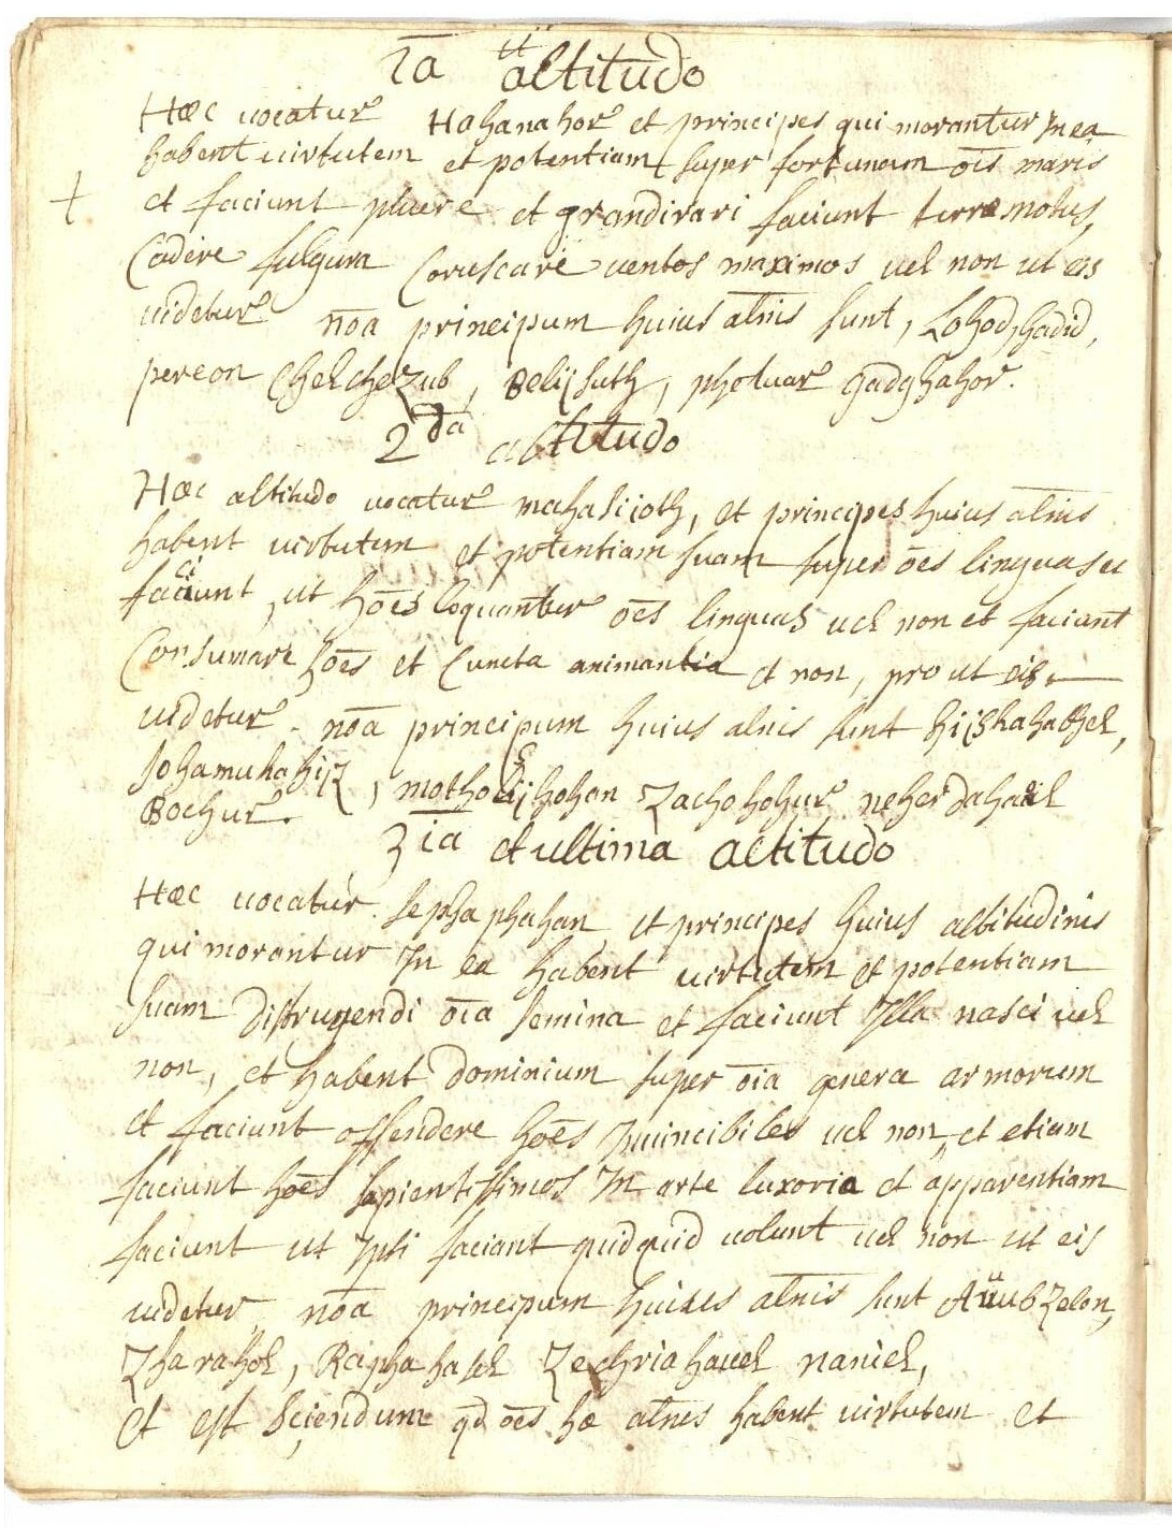 1a altitudo
Hæc uocatur Hahanahor et principes qui morantur In ea
habent uirtutem et potentiam super fortunam oīs maris
et faciunt pluere et grandinari faciunt terræ motus,
Cadere fulgura Coruscare uentos maximos uel non ut eis
uidetur nōa principum huius altn̄is sunt, Lohod, hadid,
pereon Chelchezub, Belijsuth, photuar gadghahor.
2da altitudo
Hæc altitudo uocatur mahasiioth, et principes huius altn̄is
habent uirtutem et potentiam suam super ōes linguas et
faciunt, ut hōēs loquantur ōēs linguas uel non et faciant
Consumare hōēs et Cuncta animantia et non, pro ut eis
uidetur. nōa principum huius altn̄is sunt hijshahathel,
Johamuhahijz, hohan Zachohohur neherdahael
Bochur.
3ia et ultima altitudo
Hæc uocatur sephaphahan et principes huius altitudinis
qui morantur In ea habent uirtutem et potentiam
suam distruendi ōīa semina et faciunt Illa nasci uel
non, et habent dominium super ōīa genera armorum
et faciunt offendere hōēs Inuincibiles uel non, et etiam
faciunt hōēs sapientissimos In arte luxoria et apparentiam
faciunt ut Ipsi faciant quidquid uolunt uel non ut eis
uidetur nōa principum huius altn̄is sunt Auubzelon,
Zharahol, Raphahasel Zechriahauel naniel,
Et est sciendum qd ōēs hæ altn̄es habent uirtutem et